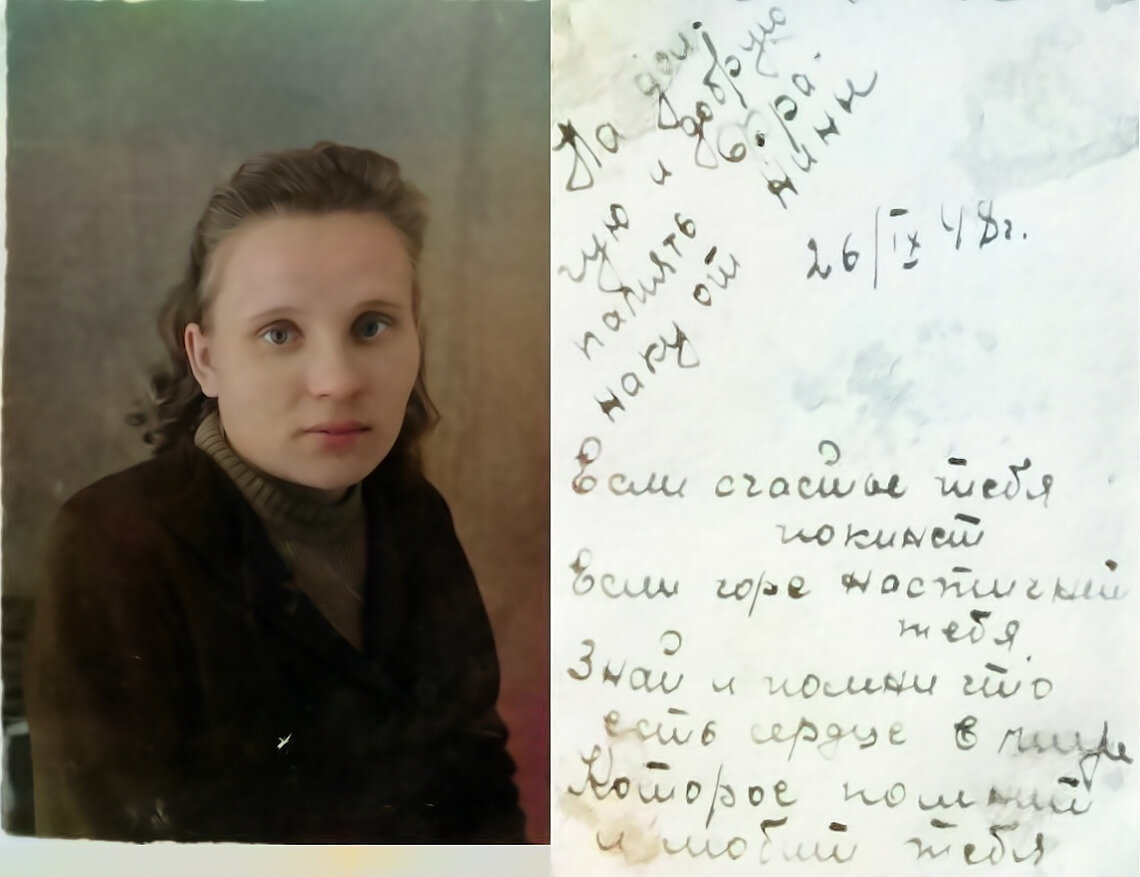 На дол-
гую и добрую
память
наку от нины
26/IX 48г.
Если счастье тебя
покинет
Если горе настигнит
тебя
Знай и помни что
есть сердце в мире
Которое помнит
и любит тебя